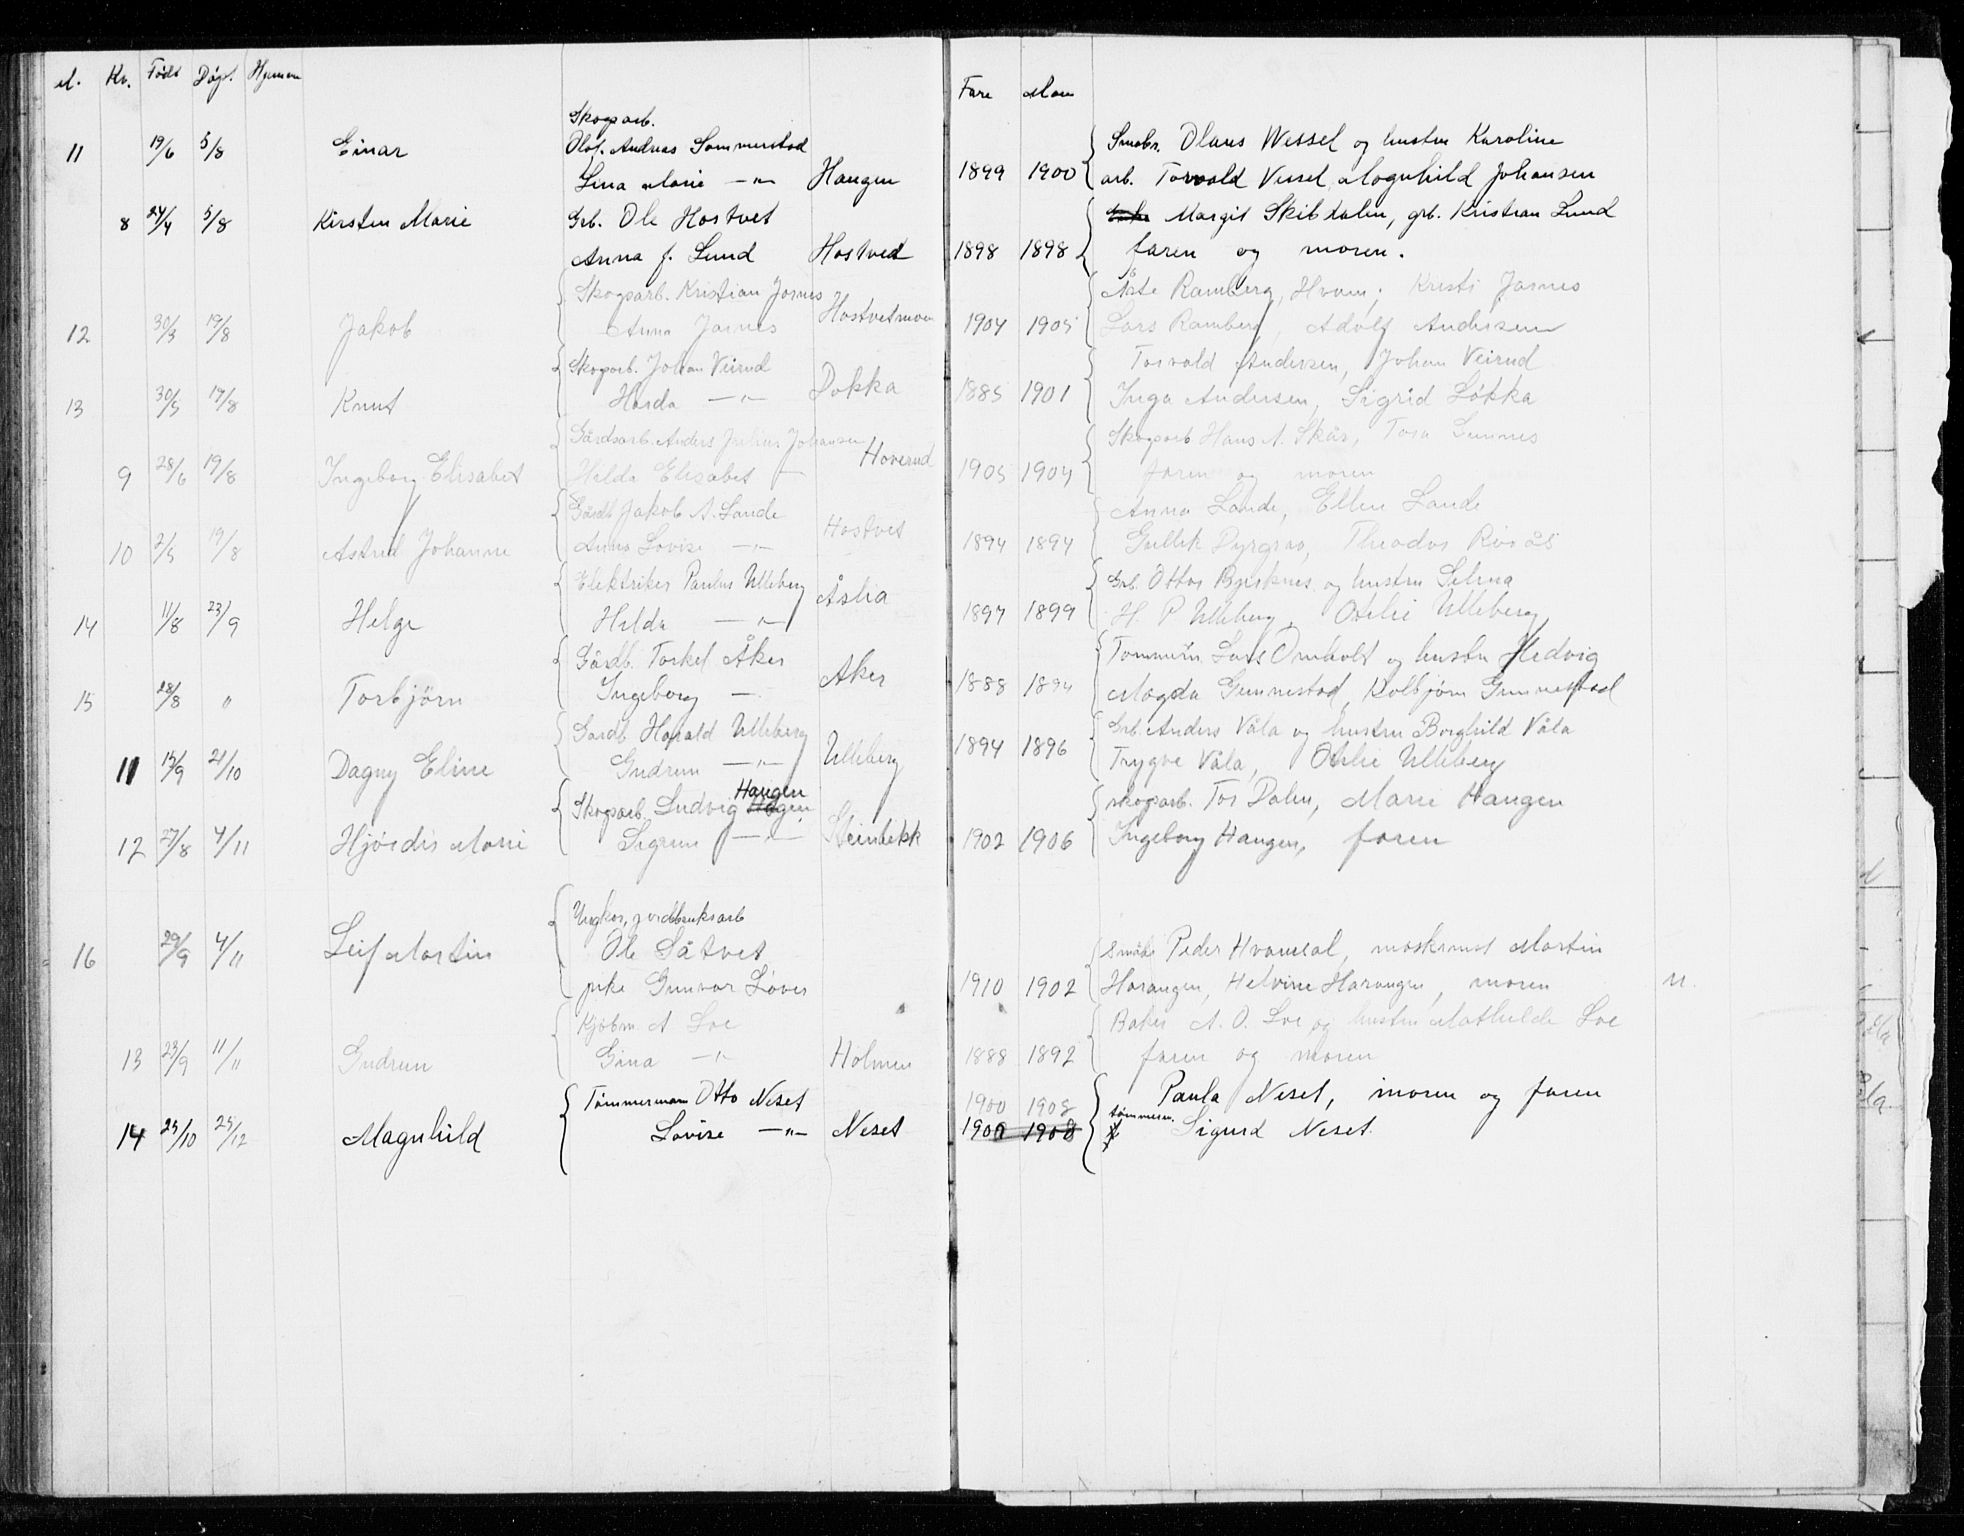 M. Kv. Født Døpt Hjemme Fare Mor
Skogsarb.
11 19/6 5/8 Einar Olof. Andreas Sommerstad Smabr. Olaus Wessel og hustru Karoline
Lina Marie —"— Haugen 1899 1900 arb. Torvald Vessel, Magnhild Johansen
8 24/4 5/8 Kirsten Marie Grb. Ole Hostvet Margit Skibdalen, grb. Kristian Lund
Anna f. Lund Hostved 1898 1898 faren og moren.
Skogsarb. Kristian Jornes Åste Ramberg, Hvam, Kristi Jornes
12 30/3 19/8 Jakob Anna Jornes Hostvetmoen 1904 1905 Lars Ramberg, Adolf Andersen
Skogarb. Johan Veirud Torvald Andersen, Johan Veirud
13 30/5 19/8 Knut Harda —"— Dokka 1885 1901 Inga Andersen, Sigrid Løkka
Gårdsarb. Anders Julius Johansen Skogsarb Hans A. Skår, Tora Gunnes
9 28/6 19/8 Ingeborg Elisabet Hilda Elisabet — Hoverud 1905 1904 faren og moren
Gårdb Jakob A. Lande Anna Lande, Ellen Lande
10 2/5 19/8 Astrid Johanne Anna Lovise —"— Hostvet 1894 1894 Gullik Dyrgrav, Theodor Risås
Elektriker Paulus Ulleberg Grb. Ottar Bjerknes og hustru Selma
14 11/8 23/9 Helge Hilda —"— Åslia 1897 1899 H. P. Ulleberg, Otelie Ulleberg
Gårdb. Torkel Åker Tømmerm Lars Omholt og hustru Hedvig
15 28/8 " Torbjörn Ingeborg — Aker 1888 1894 Magda Gunnestad, Kolbjörn Gunnestad
Gardb Harald Ulleberg Grb. Anders Våla og hustru Borghild Våla
11 15/9 21/10 Dagny Eline Gudrun —"— Ulleberg 1894 1896 Trygve Våla, Otelie Ulleberg
Skogsarb Ludvig Hagen Haugen skogsarb. Tor Dalen, Marie Haugen
12 27/8 4/11 Hjørdis Marie Sigrun —"— Steinbekk 1902 1906 Ingeborg Haugen, faren
Ungkar, jordbruksarb
16 29/9 4/11 Leif Martin Ole Såtvet Småbr Peder Hvamsal, maskinist Martin
pike Gunvor Løver 1910 1902 Harangen, Helvine Harangen, moren u.
Kjøbm. A Loe Baker A. O. Loe og hustru Mathilde Loe
13 23/9 11/11 Gudrun Gina —"— Holmen 1888 1892 faren og moren
Tømmermann Otto Neset 1900 1908 Paula Neset, moren og faren
tømmerm.
14 25/10 25/12 Magnhild Lovise —"— Neset 1900 1908 Sigurd Neset